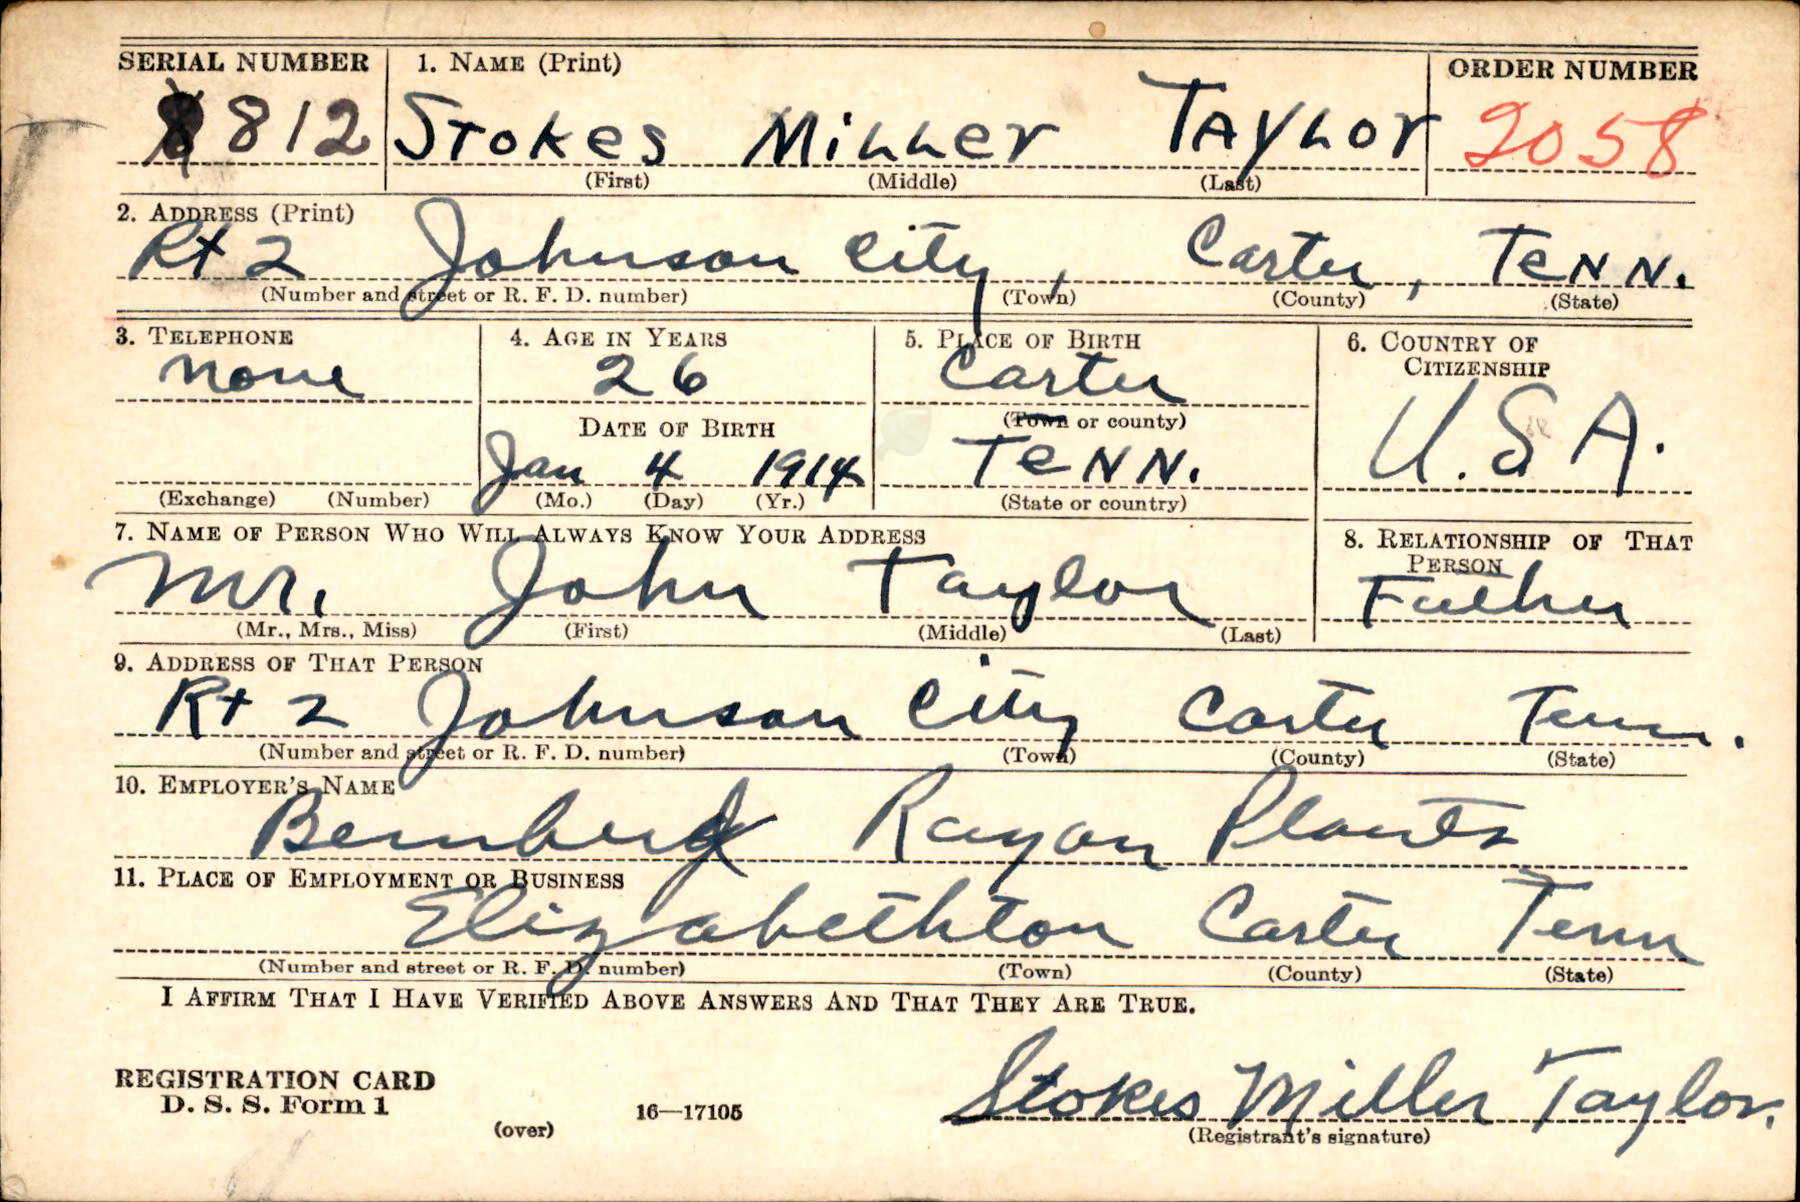 SERIAL NUMBER 1. NAME (Print) ORDER NUMBER
812 STOKES MILLER TAYLOR 2058
(First) (Middle) (Last)
2. ADDRESS (Print)
Rt 2 Johnson City, Carter, TENN.
(Number and street or R. F. D. number) (Town) (County) (State)
3. TELEPHONE 4. AGE IN YEARS 5. PLACE OF BIRTH 6. COUNTRY OF CITIZENSHIP
none 26 Carter
(Town or county)
DATE OF BIRTH U.S.A.
Jan 4 1914 TENN.
(Exchange) (Number) (Mo.) (Day) (Yr.) (State or country)
7. NAME OF PERSON WHO WILL ALWAYS KNOW YOUR ADDRESS 8. RELATIONSHIP OF THAT PERSON
Mr. John Taylor Father
(Mr., Mrs., Miss) (First) (Middle) (Last)
9. ADDRESS OF THAT PERSON
Rt 2 Johnson City Carter Tenn.
(Number and street or R. F. D. number) (Town) (County) (State)
10. EMPLOYER'S NAME
Bemberg Rayon Plants
11. PLACE OF EMPLOYMENT OR BUSINESS
Elizabethton Carter Tenn
(Number and street or R. F. D. number) (Town) (County) (State)
I AFFIRM THAT I HAVE VERIFIED ABOVE ANSWERS AND THAT THEY ARE TRUE.
REGISTRATION CARD
D. S. S. Form 1
(over) 16—17105
Stokes Miller Taylor.
(Registrant's signature)